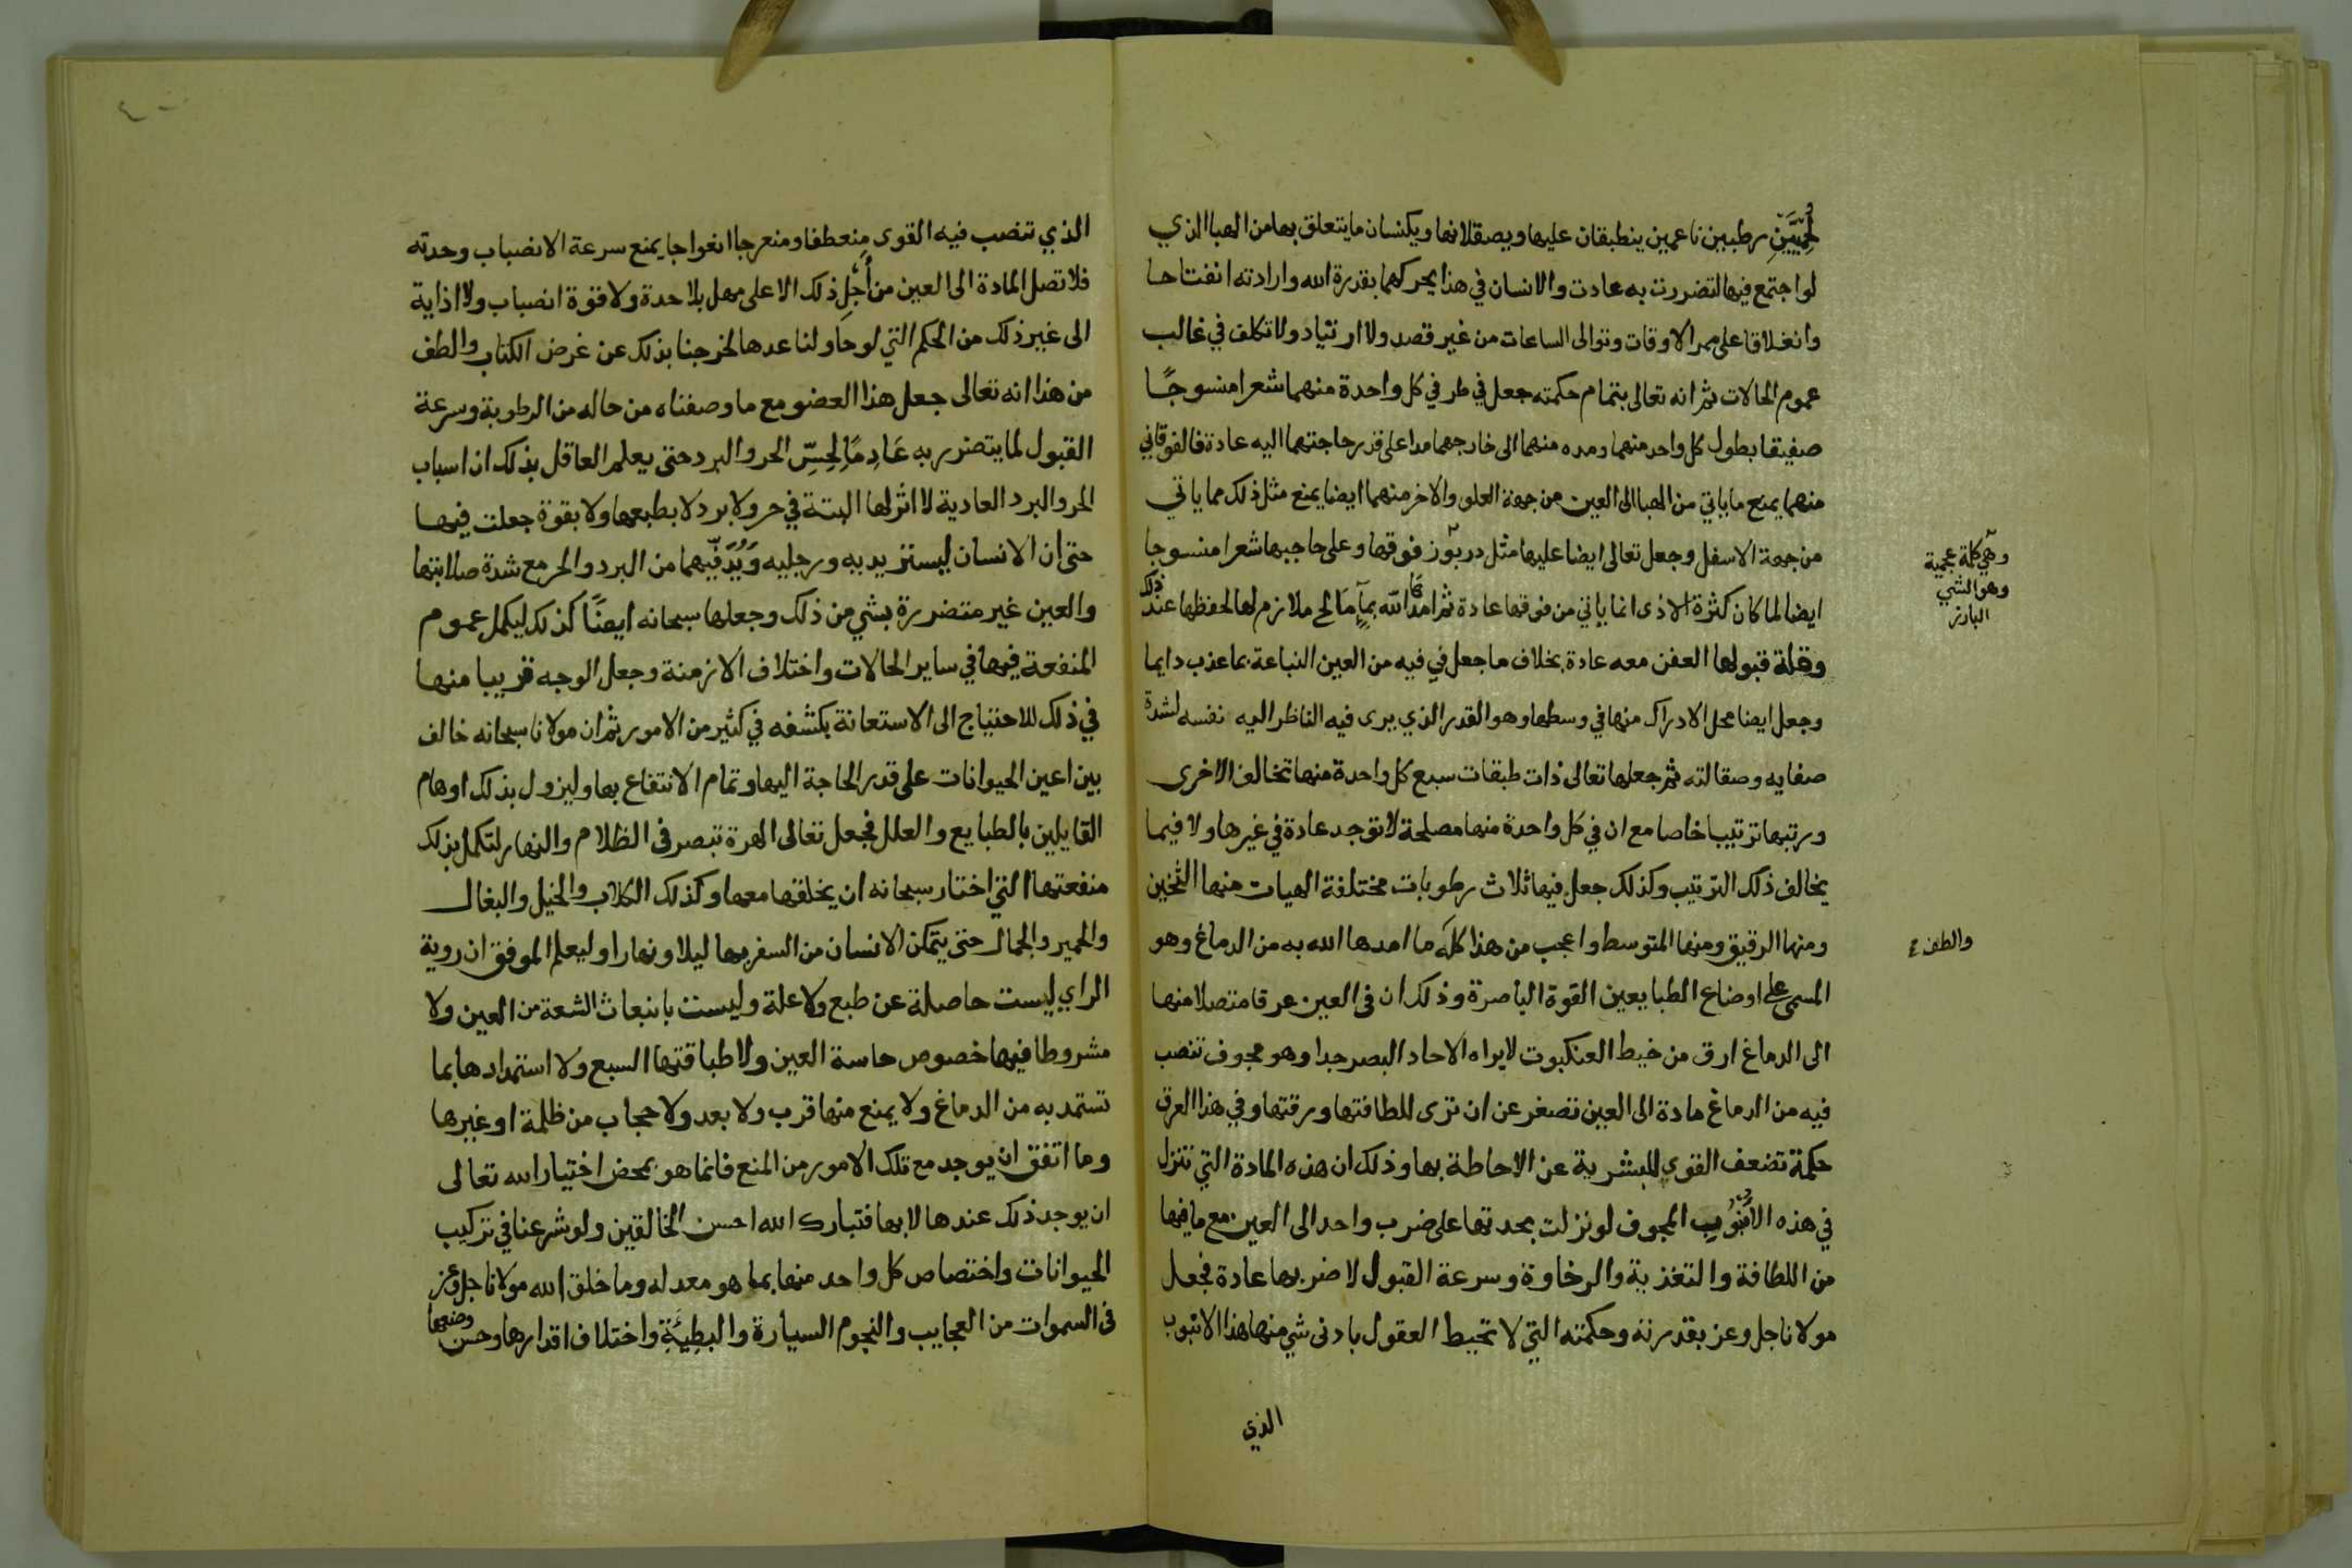 لحميّين رطبين ناعمين ينطبقان عليها ويصقلانها ويكنسان ما يتعلق بها من الهبا الذي
لو اجتمع فيها لتضررت به عادت والانسان في هذا يحركهما بقدرة الله وارادته انفتاحا
وانغلاقا على ممر الاوقات وتوالى الساعات من غير قصد ولا ارتياد ولا تكلف في غالب
عموم الحالات ثم انه تعالى بتمام حكمته جعل في طرفي كل واحدة منهما شعرا منسوجًا
صفيقا بطول كل واحد منهما ومده منهما الى خارجهما مدا على قدر حاجتهما اليه عادة فالفوقاني
منهما يمنع ما ياتي من الهبا الى العين من جهة العلو والاخر منهما ايضا يمنع مثل ذلك مما ياتي
من جهة الاسفل وجعل تعالى ايضا عليها مثل دربوز فوقها وعلى حاجبها شعرا منسوجا
وهي كلة عجمية
وهو الشي
البارز
ايضا لما كان كثرة الاذى انما ياتي من فوقها عادة ثم امدها الله بمآءٍ مَالح ملازم لها لحفظها عند ذلك
وقلة قبولها العفن معه عادة بخلاف ما جعل في فيه من العين النباعة بما عذب دايما
وجعل ايضا محل الادراك منها في وسطها وهو القدر الذي يرى فيه الناظر اليه نفسه لشدة
صفايه وصقالته ثم جعلها تعالى ذات طبقات سبع كل واحدة منها تخالف الاخرى
ورتبها ترتيبا خاصا مع ان في كل واحدة منها مصلحة لا توجد عادة في غيرها ولا فيما
يخالف ذلك الترتيب وكذلك جعل فيها ثلاث رطوبات مختلفة الهيات منها الثخين
ومنها الرقيق ومنها المتوسط واعجب من هذا كله ما امدها الله به من الدماغ وهو
والطف ع
المسمى على اوضاع الطبايعين القوة الباصرة وذلك ان في العين عرقا متصلا منها
الى الدماغ ارق من خيط العنكبوت لا يراه الا حاد البصر جدا وهو مجوف تنصب
فيه من الدماغ مادة الى العين تصغر عن ان ترى للطافتها ورقتها وفي هذا العرق
حكمة تضعف القوي البشرية عن الاحاطة بها وذلك ان هذه المادة التي تنزل
في هذه الأنبُوب المجوف لو نزلت بحدتها على ضرب واحد الى العين مع ما فيها
من اللطافة والتغذية والرخاوة وسرعة القبول لاضر بها عادة فجعل
مولانا جل وعز بقدرته وحكمته التي لا تحيط العقول بادنى شي منها هذا الانبوب
الذي
الذي تنصب فيه القوى منعطفا ومنعرجا انعواجا يمنع سرعة الانصباب وحدته
فلا تصل المادة الى العين من أجلِ ذلك الا على مهل بلا حدة ولا قوة انصباب ولا اذاية
الى غير ذلك من الحكم التي لو حاولنا عدها لخرجنا بذلك عن غرض الكتاب والطف
من هذا انه تعالى جعل هذا العضو مع ما وصفناه من حاله من الرطوبة وسرعة
القبول لما يتضرر به عَادِمًا لِحِسِّ الحر والبرد حتى يعلم العاقل بذلك ان اسباب
الحر والبرد العادية لا اثر لها البتة في حر ولا برد لا بطبعها ولا بقوة جعلت فيها
حتى ان الانسان ليستر يديه ورجليه وَيُدَفّيهما من البرد والحر مع شدة صلابتها
والعين غير متضررة بشي من ذلك وجعلها سبحانه ايضًا كذلك ليكمل عموم
المنفعة فيها في ساير الحالات واختلاف الازمنة وجعل الوجه قريبا منها
في ذلك للاحتياج الى الاستعانة بكشفه في كثير من الامور ثم ان مولانا سبحانه خالف
بين اعين الحيوانات على قدر الحاجة اليها وتمام الانتفاع بها وليزول بذلك اوهام
القايلين بالطبايع والعلل فجعل تعالى الهرة تبصر في الظلام والنهار لتكمل بذلك
منفعتها التي اختار سبحانه ان يخلقها معها وكذلك الكلاب والخيل والبغال
والحمير والجمال حتى يتمكن الانسان من السفر بها ليلا ونهارا وليعلم الموفق ان روية
الراي ليست حاصلة عن طبع ولا علة وليست بانبعاث الشعة من العين ولا
مشروطا فيها خصوص حاسة العين ولا طباقتها السبع ولا استمدادها بما
تستمد به من الدماغ ولا يمنع منها قرب ولا بعد ولا حجاب من ظلمة او غيرها
وما اتفق ان يوجد مع تلك الامور من المنع فانما هو بمحض اختيار الله تعالى
ان يوجد ذلك عندها لا بها فتبارك الله احسن الخالقين ولو شرعنا في تركيب
الحيوانات واختصاص كل واحد منها بما هو معد له وما خلق الله مولانا جل وعز
في السموات من العجايب والنجوم السيارة والبطيئة واختلاف اقدارها وحسن وضعها